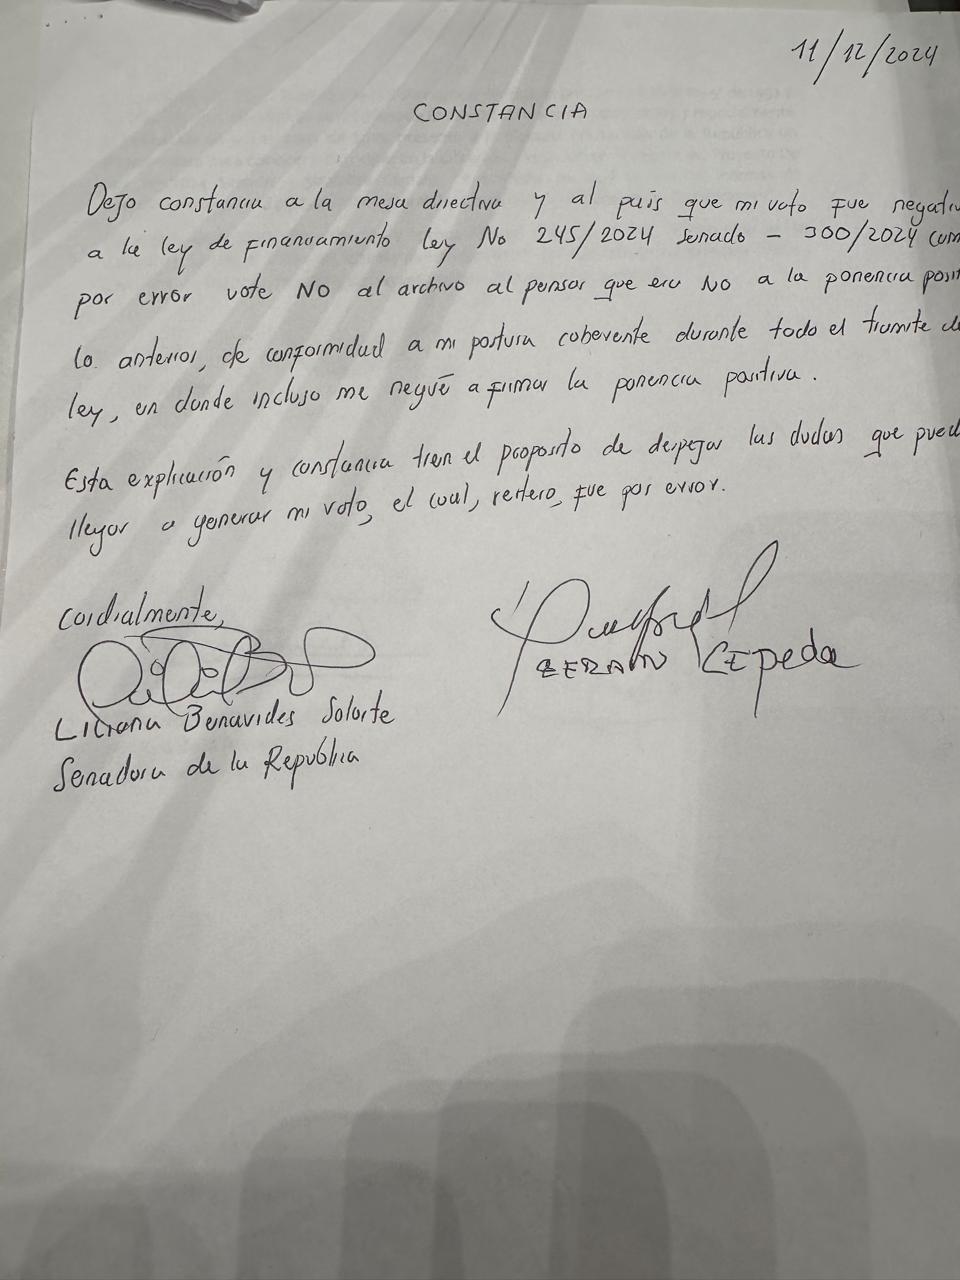 11/12/2024
CONSTANCIA
Dejo constancia a la mesa directiva y al país que mi voto fue negativ
a la ley de financiamiento ley No 245/2024 Senado - 300/2024 cam
por error vote NO al archivo al pensar que era NO a la ponencia posit
lo anterior, de conformidad a mi postura coherente durante todo el tramite de
ley, en donde incluso me negué a firmar la ponencia positiva.
Esta explicación y constancia tien el proposito de despejar las dudas que pued
llegar a generar mi voto, el cual, reitero, fue por error.
Cordialmente,
Liliana Benavides Solarte
Senadora de la Republica
Cepeda